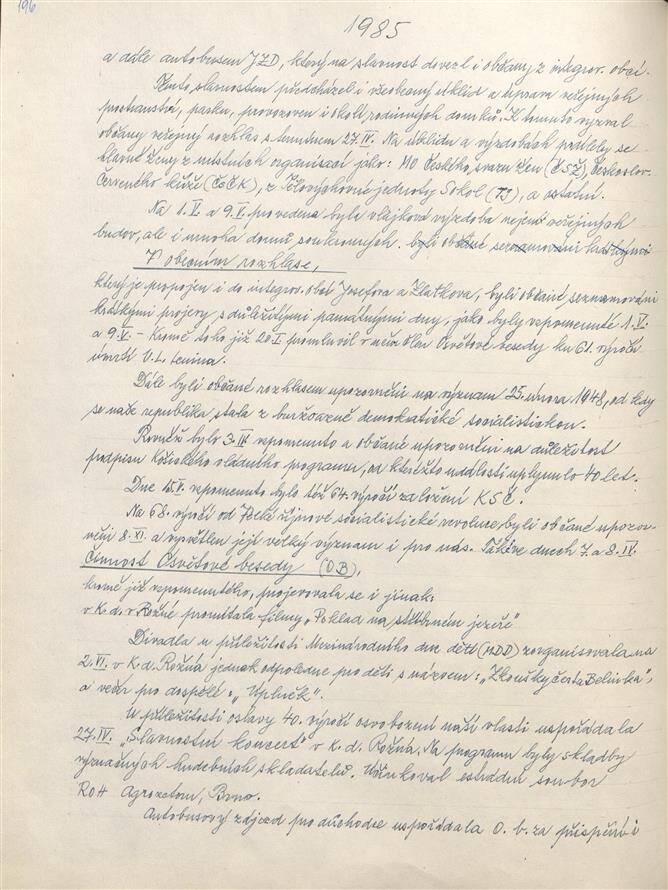 196
1985
a dále autobusem JZD, který na slavnost dovezl i občany z integrov. obcí.
Těmto slavnostem předcházel i všeobecný úklid a úprava veřejných
prostranství, parku, provozoven i okolí rodinných domků. K tomuto vyzval
občany veřejný rozhlas s termínem 27.IV. Na úklidu a výzdobách podílely se
hlavně ženy z místních organisací jako: MO Českého svazu žen (ČSŽ), Českoslov.
Červeného kříže (ČsČK), z Tělovýchovné jednoty Sokol (TJ), a ostatní.
Na 1.V. a 9.V. provedena byla vlajková výzdoba nejen veřejných
budov, ale i mnoha domů soukromých. byli občané seznamováni krátkými
V obecním rozhlase,
který je propojen i do integrov. obcí Josefova a Zlatkova, byli občané seznamováni
krátkými projevy s důležitými památnými dny, jako byly vzpomenuté 1.V.
a 9.V. – Kromě toho již 20.I promluvil v něm člen Osvětové besedy ku 61. výročí
úmrtí V. I. Lenina.
Dále byli občané rozhlasem upozorněni na význam 25. února 1948, od kdy
se naše republika stala z buržoazně demokratické socialistickou.
Rovněž bylo 3.IV. vzpomenuto a občané upozorněni na důležitost
podpisu Košického vládního programu, od kteréžto události uplynulo 40 let.
Dne 15.V. vzpomenuto bylo též 64. výročí založení KSČ.
Na 68. výročí od Velké říjnové socialistické revoluce, byli občané upozor-
něni 8.XI. a vysvětlen její velký význam i pro nás. Také ve dnech 7. a 8.IV.
Činnost Osvětové besedy (OB),
kromě již vzpomenutého, projevovala se i jinak:
v K. d. v Rožné promítala filmy „Poklad na stříbrném jezeře"
Divadla u příležitosti Mezinárodního dne dětí (MDD) zorganisovala na
2.VI. v k. d. Rožná jednak odpoledne pro děti s názvem: „Zkoušky čerta Belínka",
a večer pro dospělé: „Úplněk".
U příležitosti oslavy 40. výročí osvobození naší vlasti uspořádala
27.IV. „Slavnostní koncert" v k. d. Rožná. Na programu byly skladby
význačných hudebních skladatelů. Účinkoval estrádní soubor
ROH Agrozetom, Brno.
Autobusový zájezd pro důchodce uspořádala O. b. za přispění i